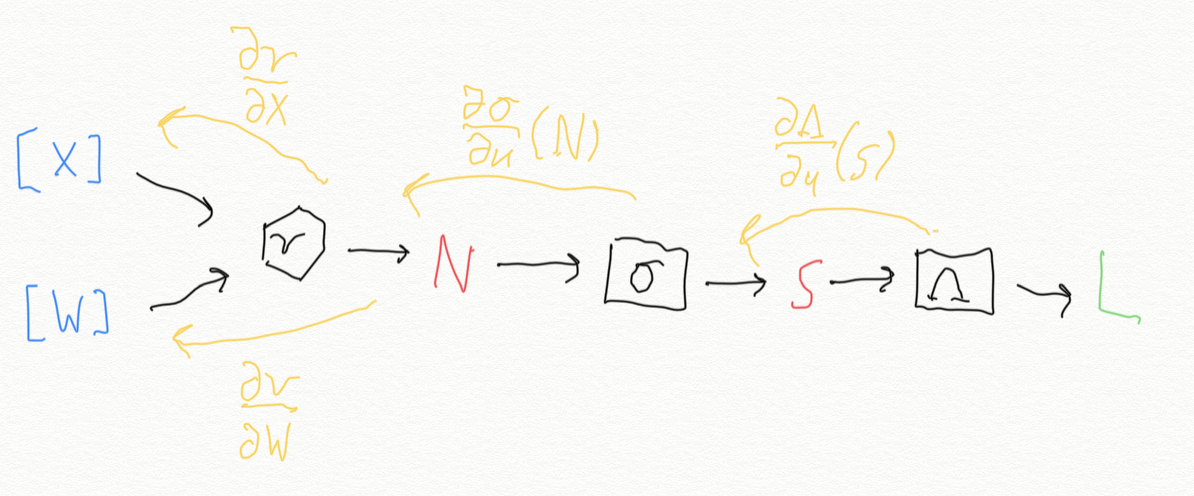 ∂ν/∂X
∂σ/∂u (N)
∂Λ/∂u (S)
[X]
ν
N
σ
S
Λ
L
[W]
∂ν/∂W